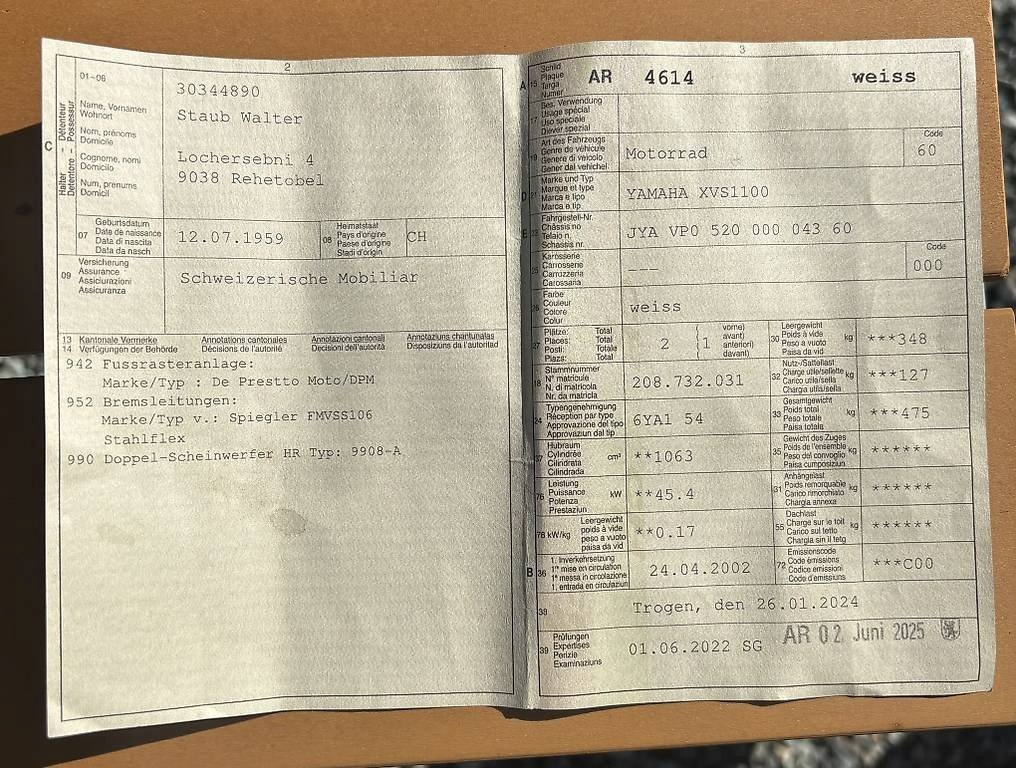 2
01-06
C
Halter - Détenteur
Detentore - Possessur
Name, Vornamen
Wohnort
Nom, prénoms
Domicile
Cognome, nomi
Domicilio
Num, prenums
Domicil
30344890
Staub Walter
Lochersebni 4
9038 Rehetobel
07
Geburtsdatum
Date de naissance
Data di nascita
Data da nasch
12.07.1959
08
Heimatstaat
Pays d'origine
Paese d'origine
Stadi d'origin
CH
09
Versicherung
Assurance
Assicurazioni
Assicuranza
Schweizerische Mobiliar
13 Kantonale Vermerke Annotations cantonales Annotazioni cantonali Annotaziuns chantunalas
14 Verfügungen der Behörde Décisions de l'autorité Decisioni dell'autorità Disposiziuns da l'autoritad
942 Fussrasteranlage:
Marke/Typ : De Prestto Moto/DPM
952 Bremsleitungen:
Marke/Typ v.: Spiegler FMVSS106
Stahlflex
990 Doppel-Scheinwerfer HR Typ: 9908-A
3
A 15
Schild
Plaque
Targa
Numer
AR 4614 weiss
17
Bes. Verwendung
Usage spécial
Uso speciale
Diever spezial
19
Art des Fahrzeugs
Genre de véhicule
Genere di veicolo
Gener dal vehichel
Motorrad
Code
60
D 21
Marke und Typ
Marque et type
Marca e tipo
Marca e tip
YAMAHA XVS1100
E 23
Fahrgestell-Nr.
Châssis no
Telaio n.
Schassis nr.
JYA VP0 520 000 043 60
25
Karosserie
Carrosserie
Carrozzeria
Carossaria
---
Code
000
26
Farbe
Couleur
Colore
Colur
weiss
27
Plätze: Total
Places: Total
Posti: Totale
Plazs: Total
2 (1
vorne)
avant)
anteriori)
davant)
30
Leergewicht
Poids à vide
Peso a vuoto
Paisa da vid
kg
***348
18
Stammnummer
N° matricule
N. di matricola
Nr. da matricla
208.732.031
32
Nutz-/Sattellast
Charge utile/sellette
Carico utile/sella
Chargia utila/sella
kg
***127
24
Typengenehmigung
Réception par type
Approvazione del tipo
Approvaziun dal tip
6YA1 54
33
Gesamtgewicht
Poids total
Peso totale
Paisa totala
kg
***475
37
Hubraum
Cylindrée
Cilindrata
Cilindrada
cm³
**1063
35
Gewicht des Zuges
Poids de l'ensemble
Peso del convoglio
Paisa cumposiziun
kg
******
76
Leistung
Puissance
Potenza
Prestaziun
kW
**45.4
31
Anhängelast
Poids remorquable
Carico rimorchiato
Chargia annexa
kg
******
78 kW/kg
Leergewicht
poids à vide
peso a vuoto
paisa da vid
**0.17
55
Dachlast
Charge sur le toit
Carico sul tetto
Chargia sin il tetg
kg
******
B 36
1. Inverkehrsetzung
1re mise en circulation
1a messa in circolazione
1. entrada en circulaziun
24.04.2002
72
Emissionscode
Code émissions
Codice emissioni
Code d'emissiuns
***C00
38
Trogen, den 26.01.2024
39
Prüfungen
Expertises
Perizie
Examinaziuns
01.06.2022 SG
AR 02. Juni 2025